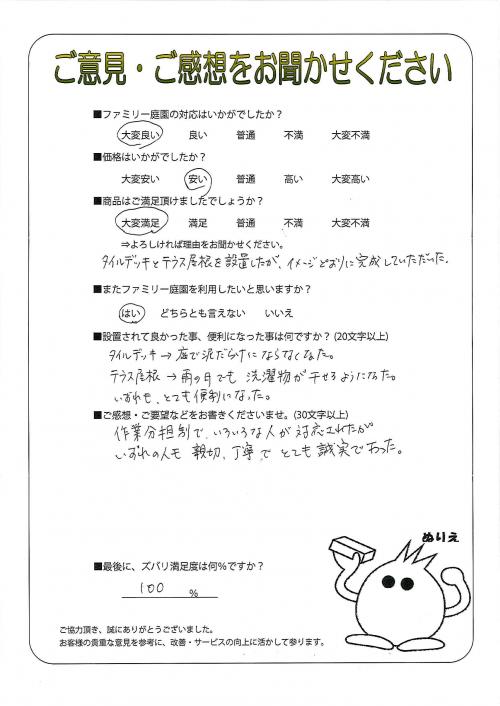 ご意見・ご感想をお聞かせください
■ファミリー庭園の対応はいかがでしたか？
大変良い 良い 普通 不満 大変不満
■価格はいかがでしたか？
大変安い 安い 普通 高い 大変高い
■商品はご満足頂けましたでしょうか？
大変満足 満足 普通 不満 大変不満
⇒よろしければ理由をお聞かせください。
タイルデッキとテラス屋根を設置したが、イメージどおりに完成していただいた。
■またファミリー庭園を利用したいと思いますか？
はい どちらとも言えない いいえ
■設置されて良かった事、便利になった事は何ですか？(20文字以上)
タイルデッキ→庭で泥だらけにならなくなった。
テラス屋根→雨の日でも洗濯物が干せるようになった。
いずれも、とても便利になった。
■ご感想・ご要望などをお書きくださいませ。(30文字以上)
作業分担別で、いろいろな人が対応されたが
いずれの人も親切、丁寧でとても誠実であった。
ぬりえ
■最後に、ズバリ満足度は何%ですか？
100 %
ご協力頂き、誠にありがとうございました。
お客様の貴重な意見を参考に、改善・サービスの向上に活かして参ります。